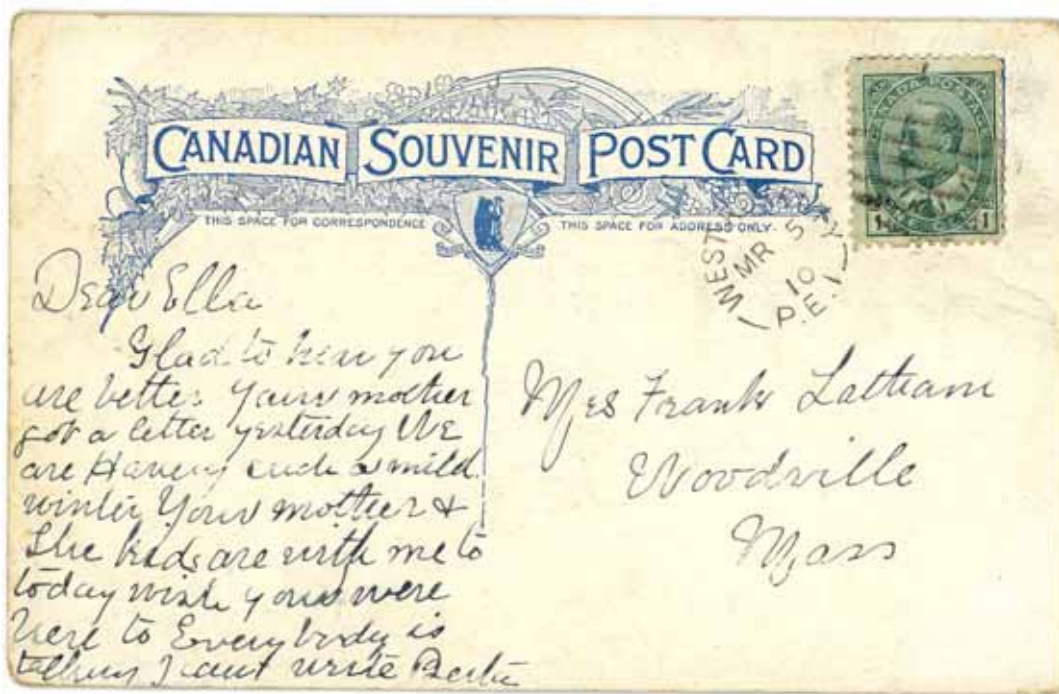 CANADIAN SOUVENIR POST CARD
THIS SPACE FOR CORRESPONDENCE
THIS SPACE FOR ADDRESS ONLY.
CANADA POSTAGE
1 1
WEST
MR 5
10
P.E.I
Dear Ella
Glad to hear you
are better Your mother
got a letter yesterday We
are Having such a mild
winter Your mother &
the kids are with me to
today wish you were
here to Everybody is
talking I cant write
Mrs Frank Latham
Woodville
Mass